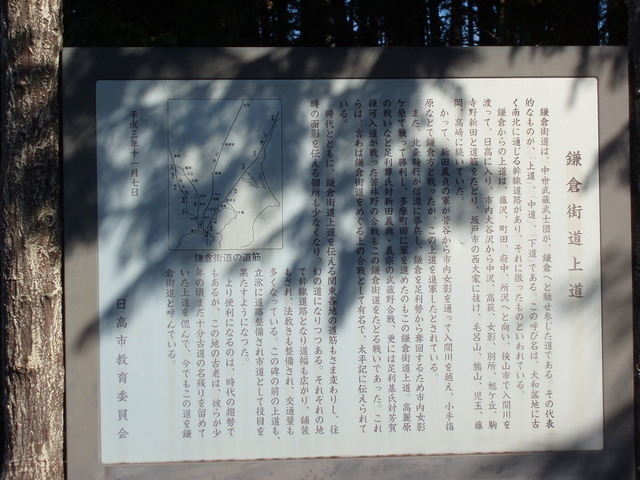 鎌倉街道上道
鎌倉街道は、中世武蔵武士団が、「鎌倉」へと馳せ参じた道である。その代表
的なものが、「上道」、「中道」、「下道」である。この呼び名は、大和盆地に古
く南北に通じる幹線道路があり、それに倣ったものといわれている。
鎌倉からの上道は、藤沢、町田、府中、所沢へと向い、狭山市で入間川を
渡って、日高に入り、市内大谷沢から中沢、高萩、女影、別所、旭ケ丘、駒
寺野新田と道筋をたどり、坂戸市の西大家に抜け、毛呂山、鳩山、児玉、藤
岡、高崎に続いていた。
かつて、新田義貞の軍が笛吹から市内女影を通って入間川を越え、小手指
原などで鎌倉方と戦ったが、この上道を進軍したとされている。
また、北条時行が信濃に挙兵し、鎌倉を足利勢から奪回するため市内女影
ケ原で戦って勝利し、多摩町田に軍を進めたのもこの鎌倉街道上道。高麗原
の戦いなど足利尊氏対新田義興・義宗の武蔵野合戦、更には足利基氏対芳賀
禅可入道が戦った苦林野の合戦もこの鎌倉街道をたどる戦いであった。これ
らは、言わば鎌倉街道をめぐる上の合戦として有名で、太平記に伝えられて
いる。
時代とともに、鎌倉街道上道を伝える関東各地の道筋もさま変わりし、往
時の面影を伝える個所も少なくなり、幻の道になりつつある。それぞれの地
で幹線道路となり道幅も広がり、舗装
もされ、法敷きも整備され、交通量も
多くなっている。この碑の前の上道も、
立派に道路整備され市道として役目を
果たすようになった。
より便利になるのは、時代の趨勢で
もあるが、この地の古老は、彼らが少
年の頃まだ十分古道の名残りを留めて
いた上道を偲んで、今でもこの道を鎌
倉街道と呼んでいる。
鎌倉街道の道筋
平成三年十一月七日
日高市教育委員会